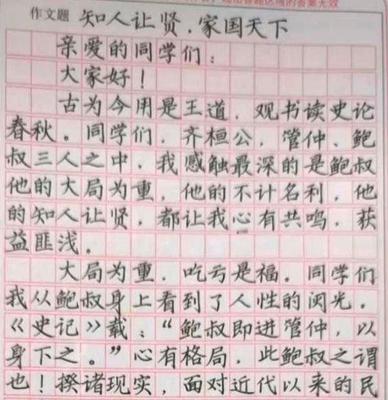 作文题 知人让贤,家国天下
亲爱的同学们:
大家好!
古为今用是王道,观书读史论
春秋。同学们,齐桓公,管仲、鲍
叔三人之中,我感触最深的是鲍叔
他的大局为重,他的不计名利,他
的知人让贤,都让我心有共鸣,获
益匪浅。
大局为重,吃亏是福。同学们
我从鲍叔身上看到了人性的闪光。
《史记》载:“鲍叔即进管仲,以
身下之。”心有格局,此鲍叔之谓
也!揆诸现实,面对近代以来的民